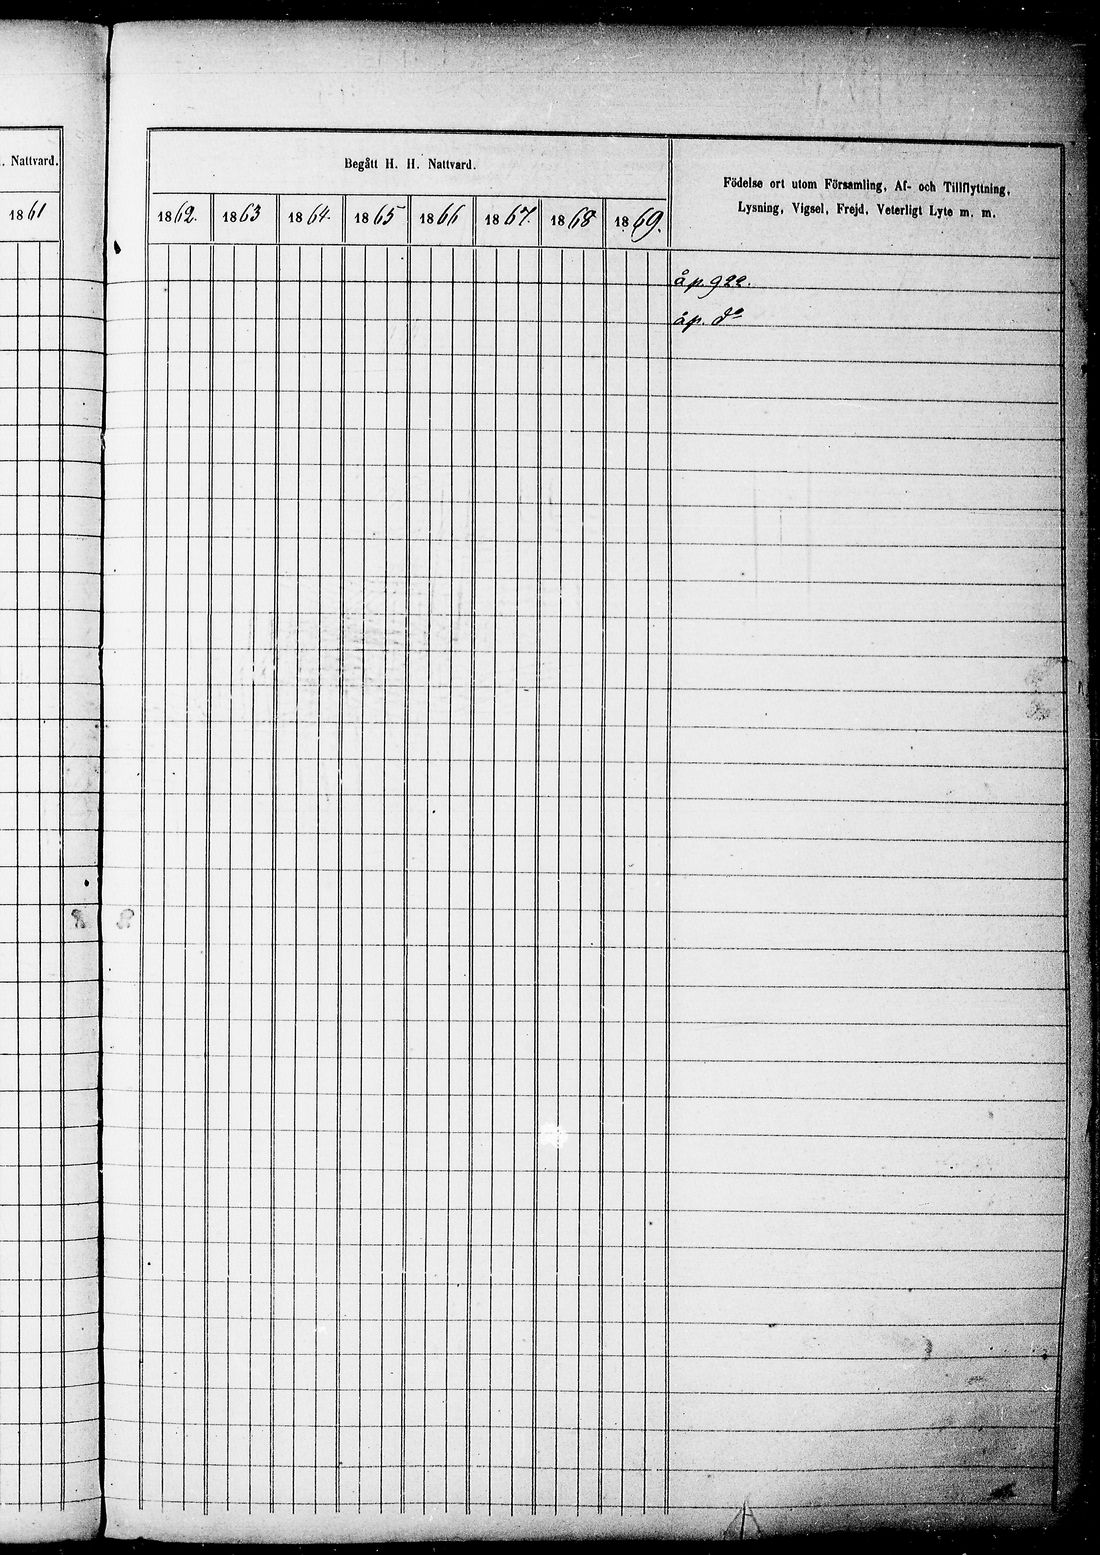 . Nattvard.
1861
Begått H. H. Nattvard.
1862. 1863 1864. 1865 1866 1867. 1868 1869.
Födelse ort utom Församling, Af- och Tillflyttning,
Lysning, Vigsel, Frejd, Veterligt Lyte m. m.
å p. 922.
å p. do